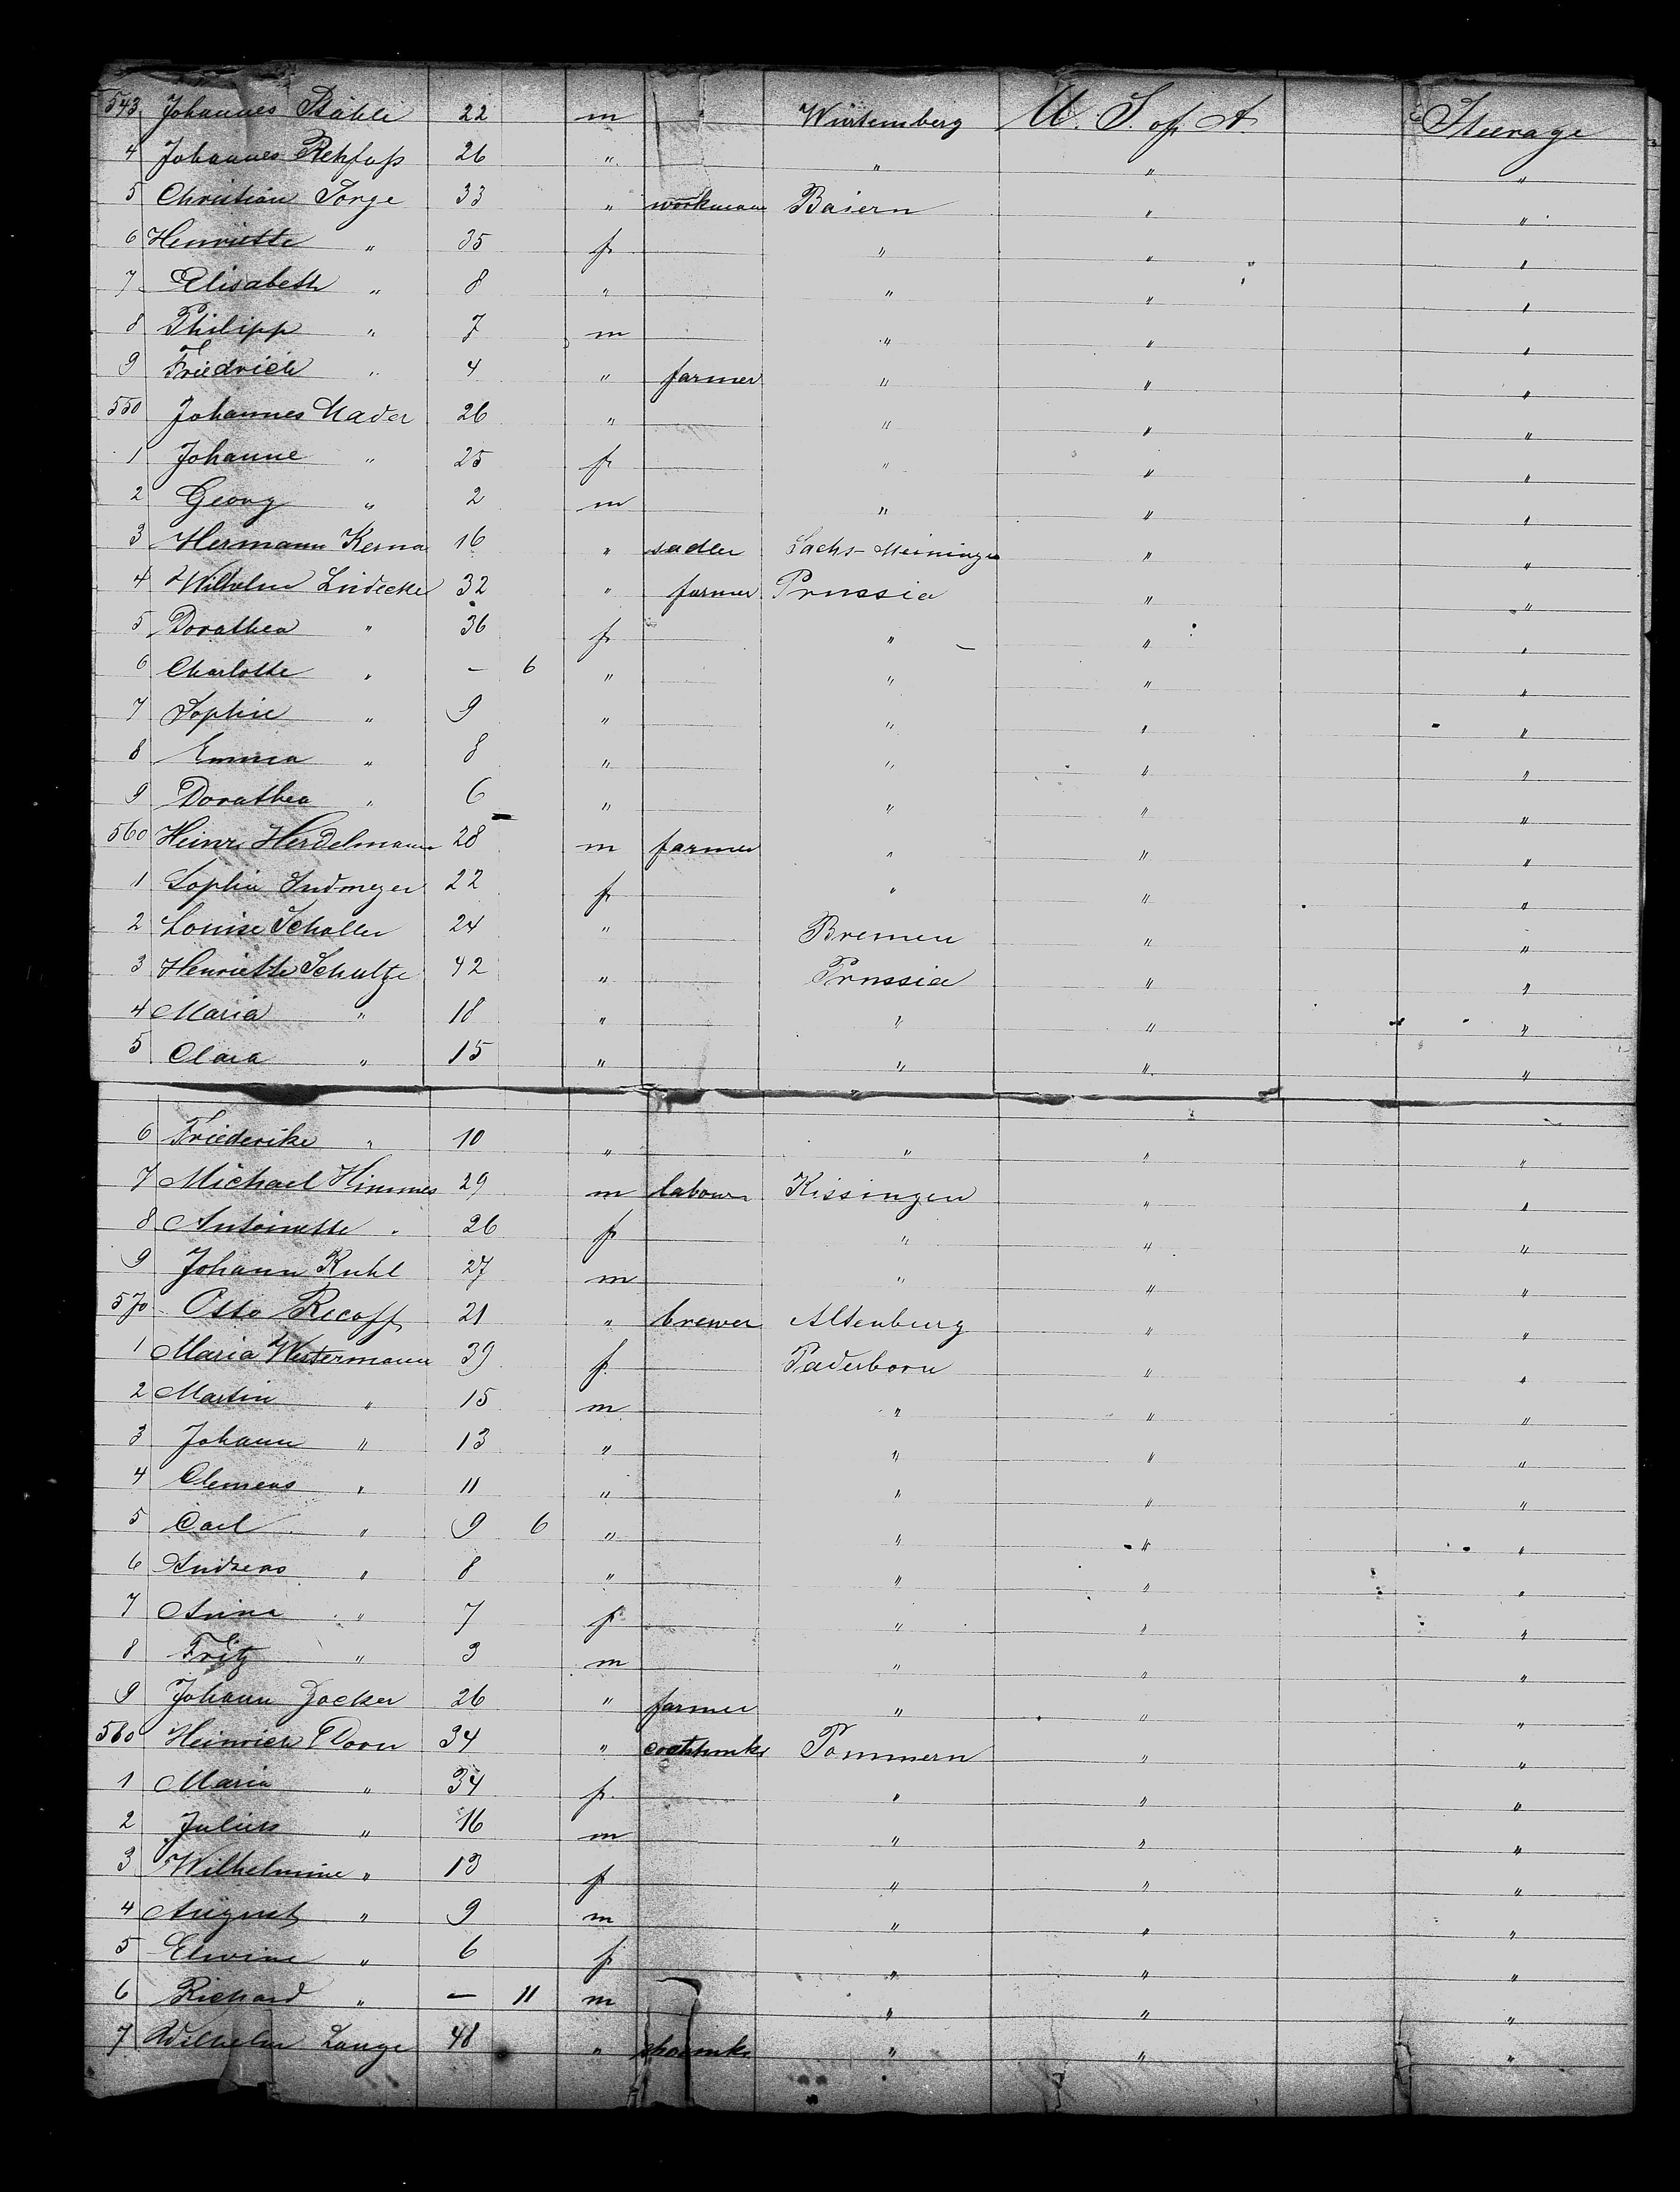 543 Johannes Stähle 22 m Würtemberg U. S. of A Steerage
4 Johannes Rehfuss 26 " " " "
5 Christian Sorge 33 " workmann Baiern " "
6 Henriette " 35 f " " "
7 Elisabeth " 8 " " " "
8 Philipp " 7 m " " "
9 Friedrich " 4 " farmer " " "
550 Johannes Mader 26 " " " "
1 Johanne " 25 f " " "
2 Georg " 2 m " " "
3 Hermann Kerna 16 " sadler Sachs-Meiningen " "
4 Wilhelm Lindecke 32 " farmer Prussia " "
5 Dorathea " 36 f " " "
6 Charlotte " – 6 " " " "
7 Sophie " 9 " " " "
8 Emma " 8 " " " "
9 Dorathea " 6 " " " "
560 Heinr. Herdelmann 28 m farmer " " "
1 Sophia Sudmeyer 22 f " " "
2 Louise Scholler 24 " Bremen " "
3 Henriette Schultze 42 " Prussia " "
4 Maria " 18 " " " "
5 Clara " 15 " " " "
6 Friederike " 10 " " " "
7 Michael Himmes 29 m labourr Kissingen " "
8 Antoinette " 26 f " " "
9 Johann Kuhl 27 m " " "
570 Otto Recoff 21 " brewer Altenburg " "
1 Maria Westermann 39 f Paderborn " "
2 Martin " 15 m " " "
3 Johann " 13 " " " "
4 Clemens " 11 " " " "
5 Carl " 9 6 " " " "
6 Andreas " 8 " " " "
7 Anna " 7 f " " "
8 Fritz " 3 m " " "
9 Johann Jocker 26 " farmer " " "
580 Heinrich Dorn 34 " Pommern " "
1 Maria " 34 f " " "
2 Julius " 16 m " " "
3 Wilhelmine " 13 f " " "
4 August " 9 m " " "
5 Elwine " 6 f " " "
6 Richard " – 11 m " " "
7 Wilhelm Lange 48 " shoemkr " " "